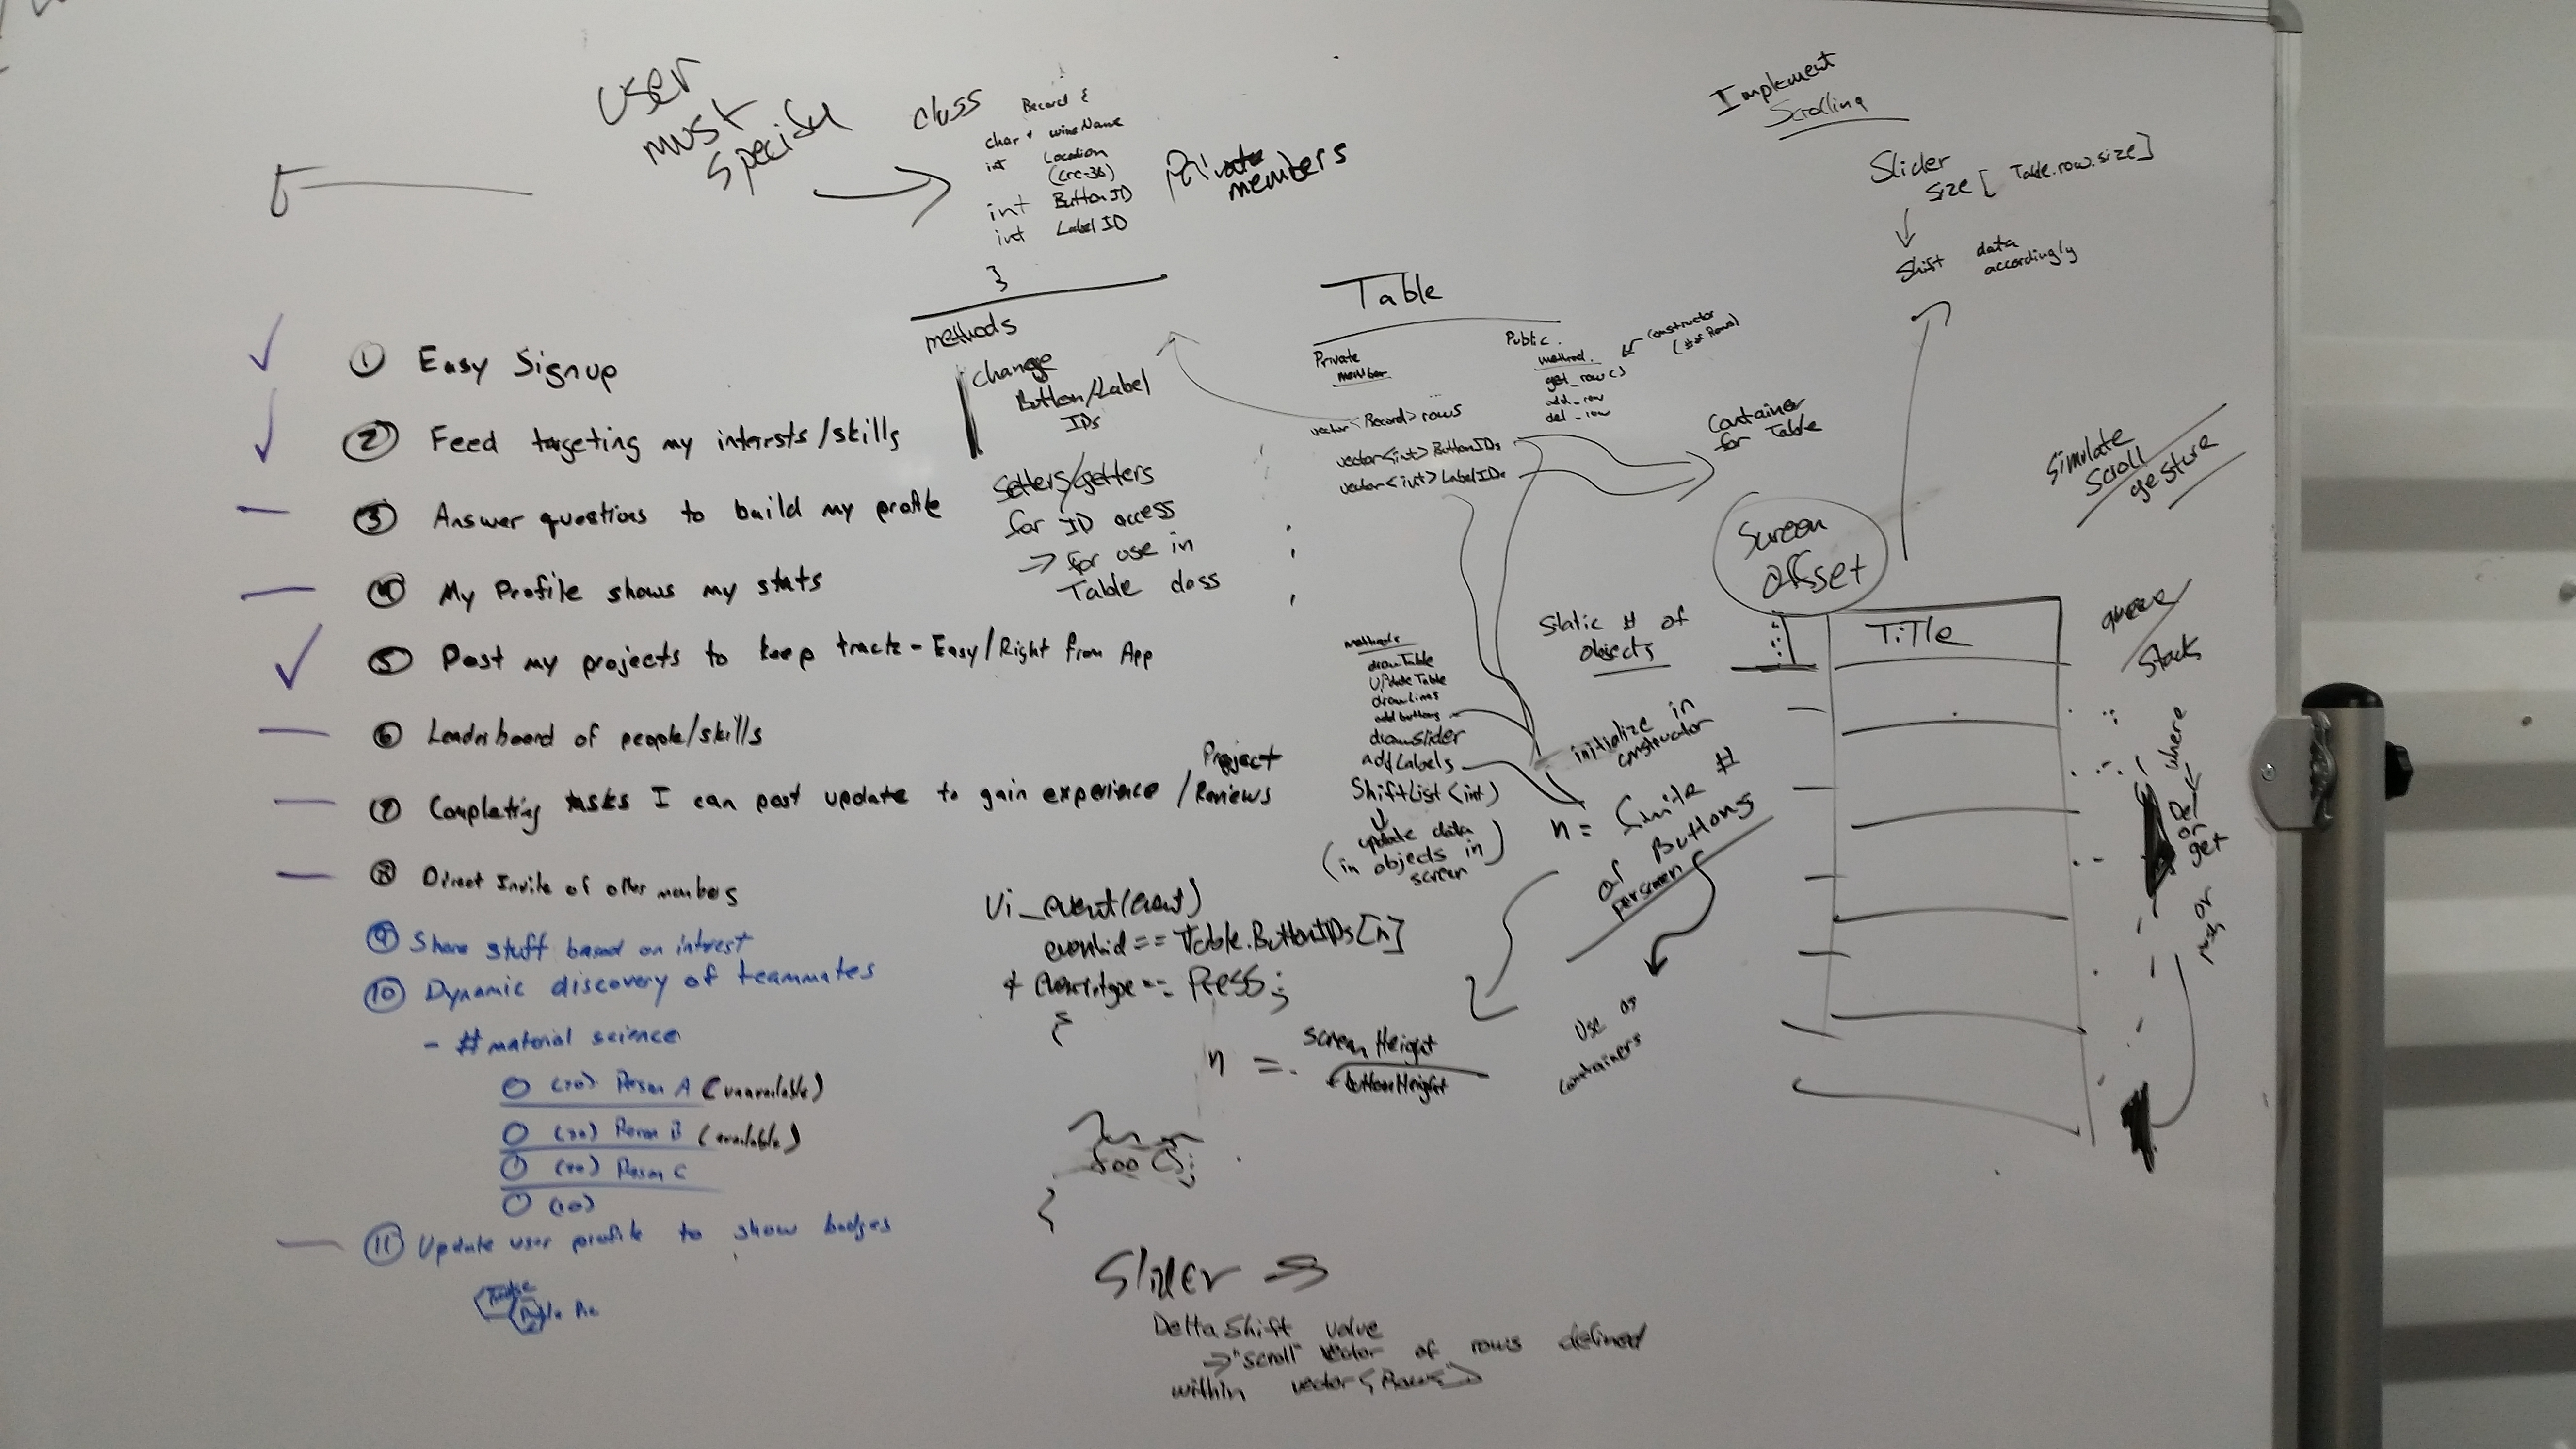 User
must
specify
class Record {
char * wineName
int Location
int ButtonID
int Label ID
}
Private
members
methods
change
Button/Label
IDs
Setters/getters
for ID access
=> for use in
Table class
① Easy Signup
② Feed targeting my interests/skills
③ Answer questions to build my profile
④ My Profile shows my stats
⑤ Post my projects to keep track - Easy/Right from App
⑥ Leaderboard of people/skills
⑦ Completing tasks I can post update to gain experience / Project Reviews
⑧ Direct Invite of other members
⑨ Share stuff based on intrest
⑩ Dynamic discovery of teammates
- # material science
Person A (unavailable)
Person B (available)
Person C
(10)
⑪ Update user profile to show badges
Table
Private
member
vector<Record> rows
vector<int> ButtonIDs
vector<int> LabelIDs
Public
method
get_row()
add_row
del_row
constructor
(# of Rows)
Container
for Table
methods
drawTable
UpdateTable
drawLines
add buttons
drawSlider
addLabels
ShiftList(int)
(update data
in objects in
screen)
Static # of
objects
initialize in
constructor
n = finite #
of Buttons
per screen
Use as
containers
n = screen Height
buttonHeight
Ui_event(event)
event.id == Table.ButtonIDs[n]
& event.type == PRESS;
{
foo();
Slider =>
Delta Shift value
=> "scroll" vector of rows defined
within vector<Rows>
Implement
Scrolling
Slider
Size [ Table.row.size]
Shift data
accordingly
Simulate
Scroll
gesture
Screen
offset
TiTle
queue/
Stacks
where
Del
or
get
or
push